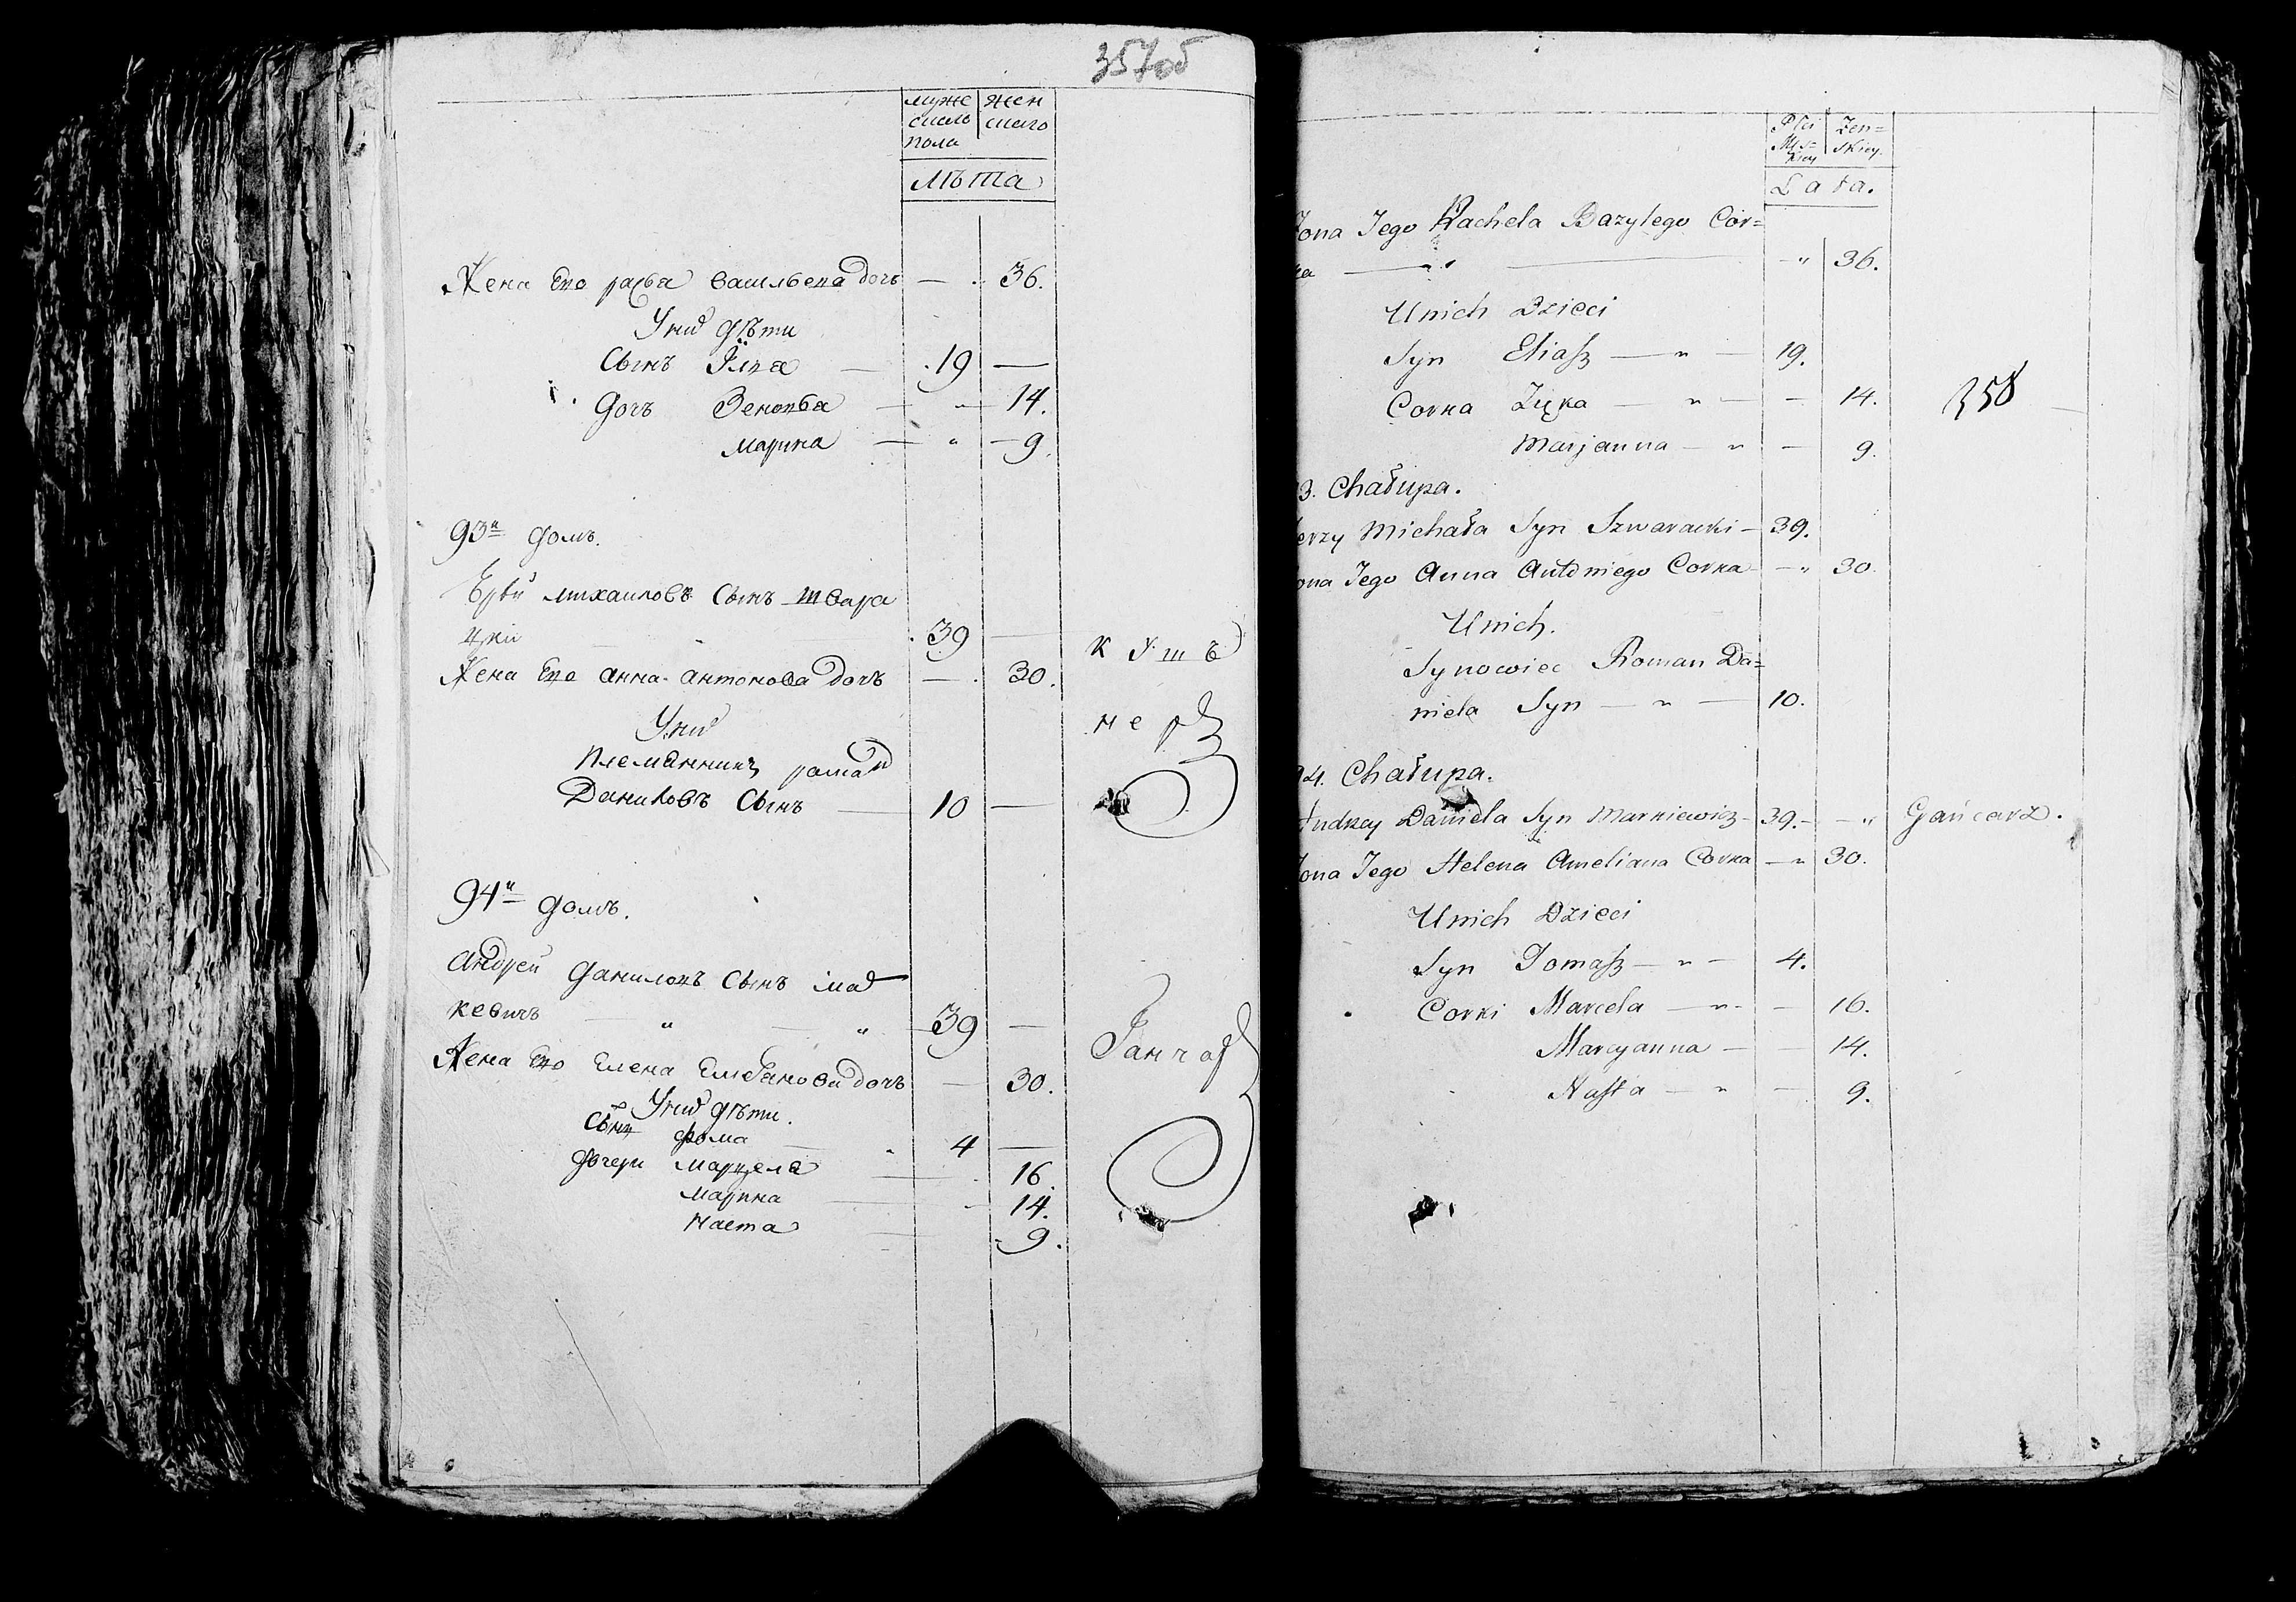 357об
муже | жен
скаго | скаго
пола
лѣта
Жена Его рахва василъева дочь — 36.
У них дѣти
Сынъ Илья — 19 —
дочь Зеновѣа — 14.
марина — 9.
93й домъ.
Ерѣй михаиловъ Сынъ швара
цкий 39 —
Жена Его Анна антонова дочь — 30.
У них
Племянникъ роман
Даниловъ Сынъ — 10 —
кушъ
неръ
94й домъ.
Андрей даниловъ Сынъ мар
кевичъ — " — " 39 —
Жена Его Елена Емелѣанова дочь — 30.
У них дѣти.
Сынъ фома — 4 —
дочери марцела — 16.
марина — 14.
наста — 9.
Ганчар
Płci | Żen=
Męs= | skiey.
kiey
Lata.
Żona Jego Rachela Bazylego Cór=
ka — " 36.
U nich Dzieci
Syn Eliasz — " — 19.
Corka Zięka — " — 14.
Marjanna — " — 9.
358
3. Chałupa.
erzy Michała Syn Szwaracki — 39.
ona Jego Anna Antoniego Corka — " 30.
U nich.
Synowiec Roman Da=
niela Syn — " — 10.
94. Chałupa.
Andrzey Daniela Syn Markiewicz — 39. — " Gańcarz.
Żona Jego Helena Ameliana Corka — " 30.
U nich Dzieci
Syn Tomasz — " — 4.
Corki Marcela — " — 16.
Marcyanna — 14.
Nasta — " — 9.